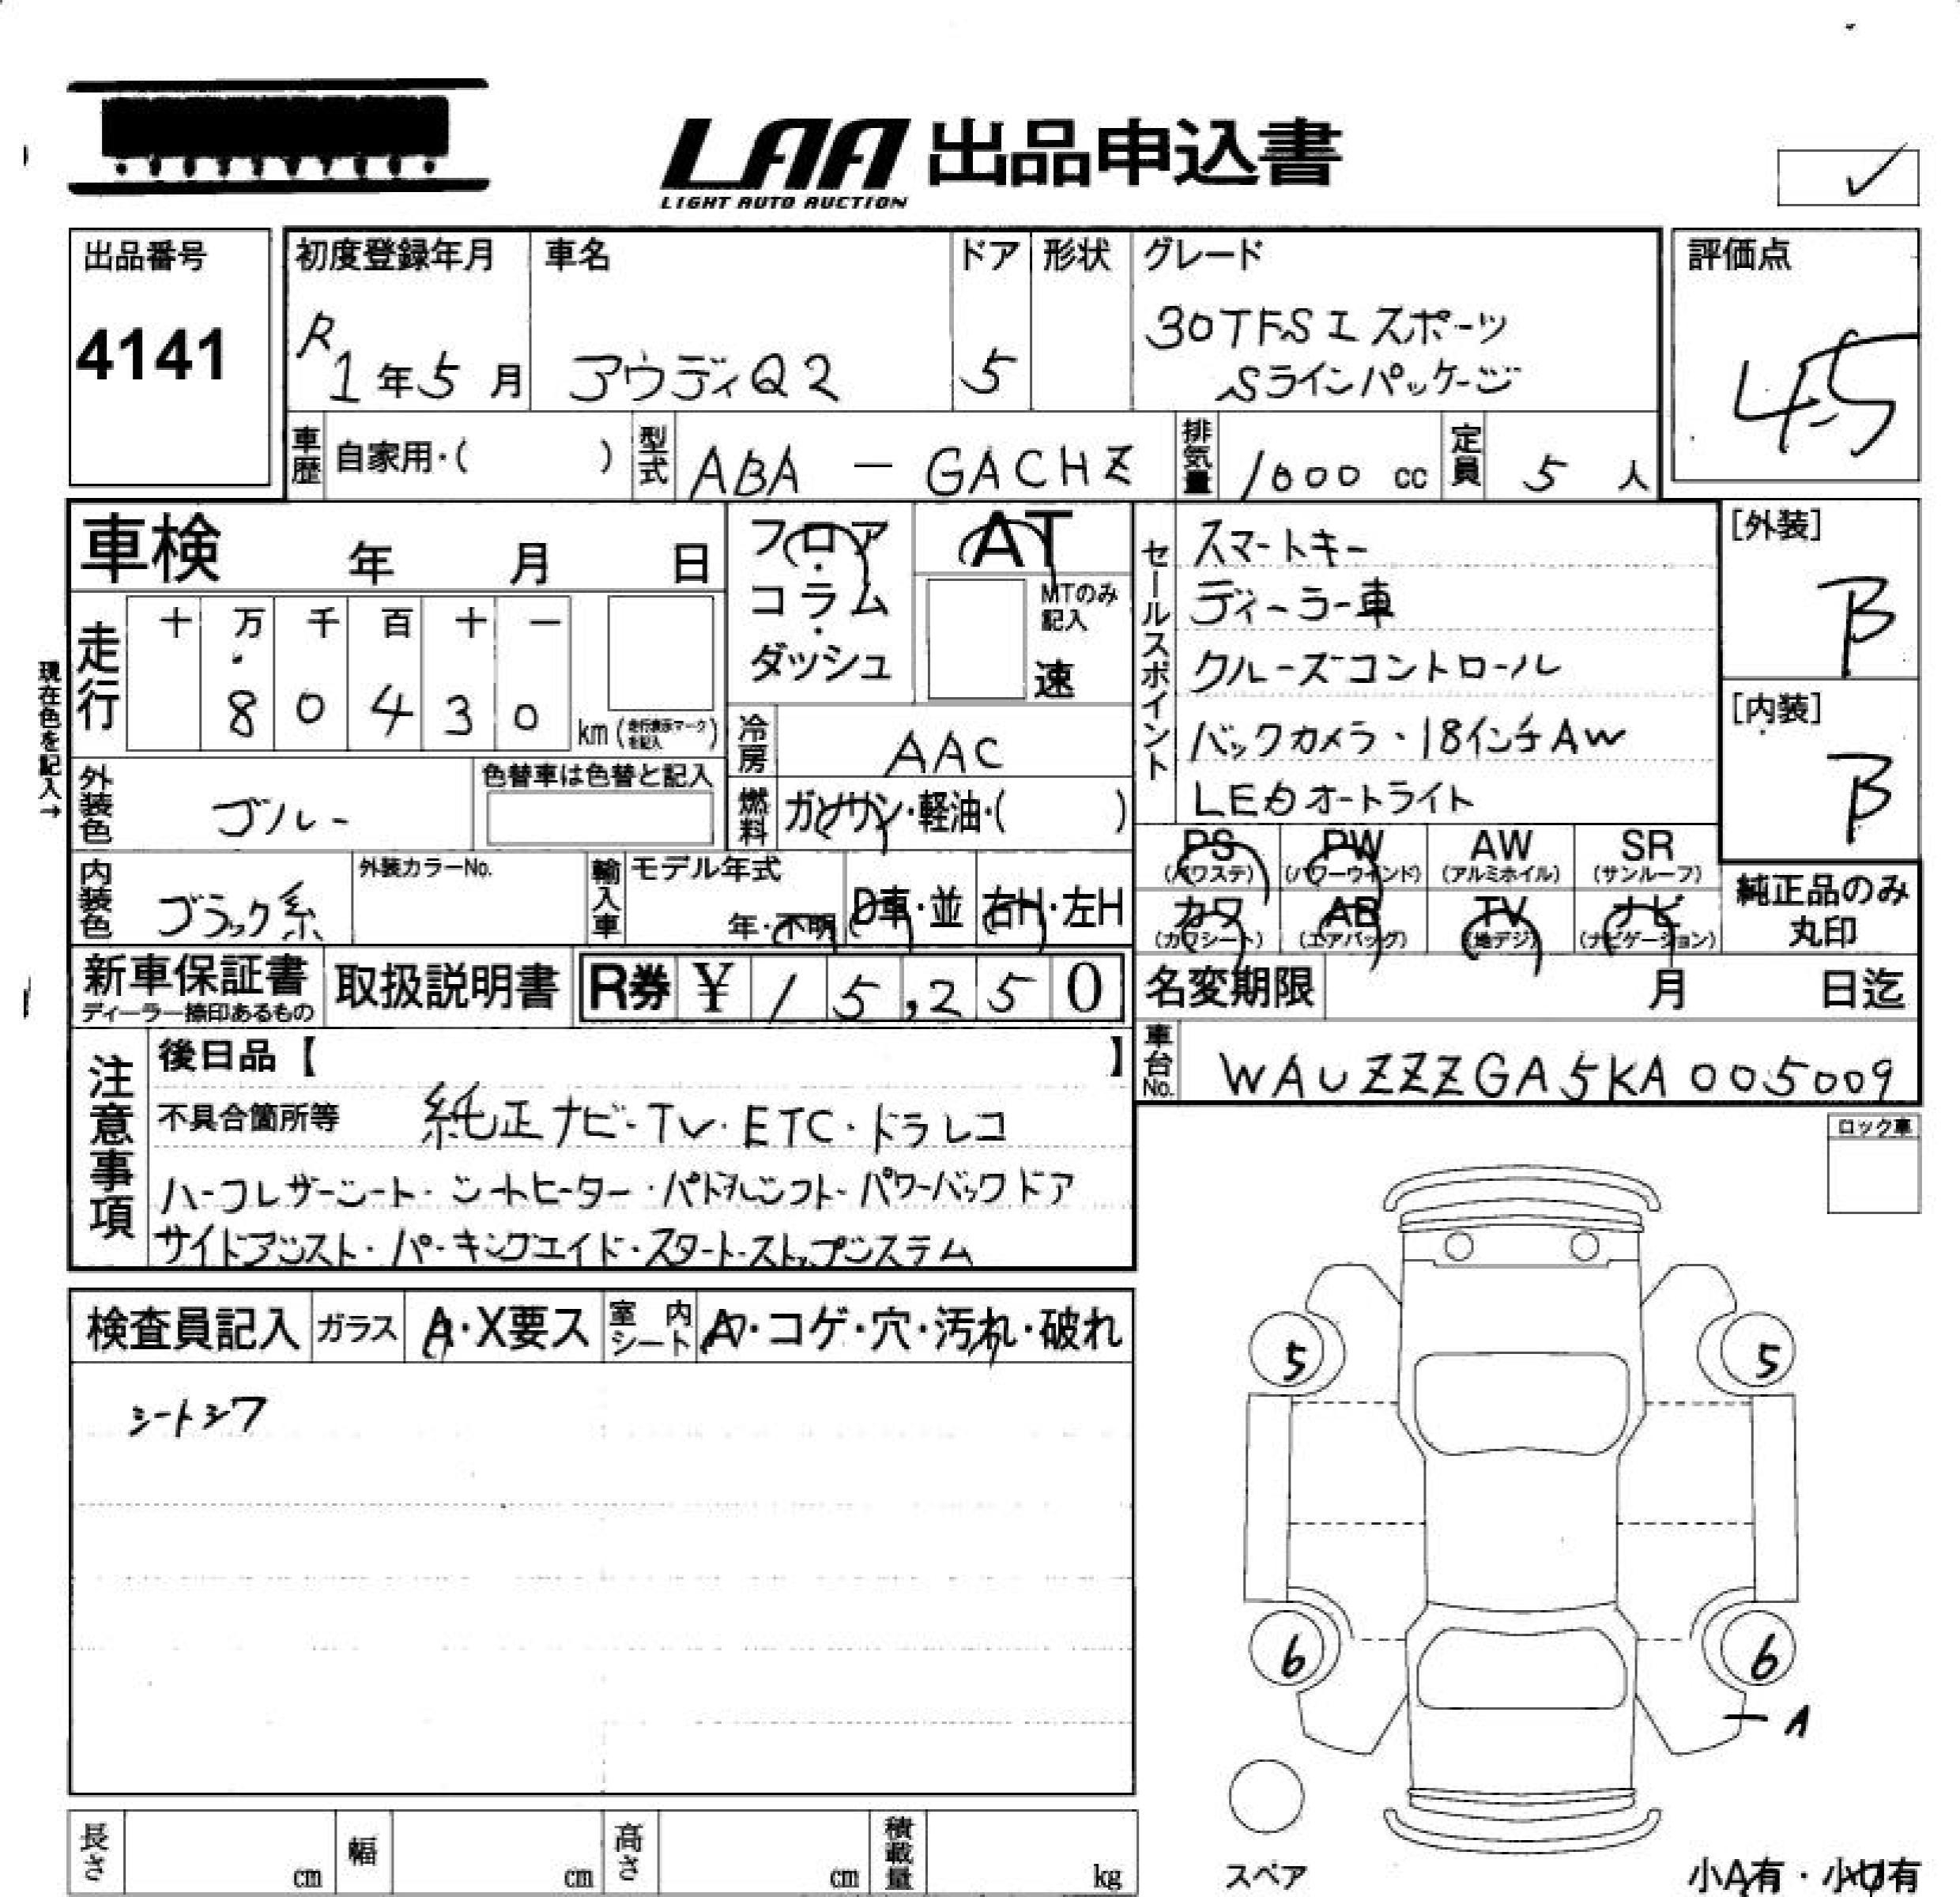 LAA 出品申込書
LIGHT AUTO AUCTION
出品番号
4141
初度登録年月
R1年5月
車名
アウディQ2
ドア
5
形状
グレード
30TFSIスポーツ
Sラインパッケージ
評価点
4.5
車歴 自家用・( )
型式 ABA — GACHZ
排気量 1000 cc
定員 5 人
車検 年 月 日
フロア・コラム・ダッシュ
AT
MTのみ記入
速
セールスポイント
スマートキー
ディーラー車
クルーズコントロール
バックカメラ・18インチAW
LEDオートライト
[外装]
B
[内装]
B
現在色を記入→
走行
十 万 千 百 十 一
8 0 4 3 0 km (走行表示マークを記入)
冷房 AAC
外装色
色替車は色替と記入
燃料 ガソリン・軽油・( )
PS (パワステ)
PW (パワーウインド)
AW (アルミホイル)
SR (サンルーフ)
カワ (カワシート)
AB (エアバッグ)
TV (地デジ)
ナビ (ナビゲーション)
純正品のみ丸印
内装色 ブラック系
外装カラーNo.
輸入車
モデル年式
年・不明
D車・並
右H・左H
新車保証書
ディーラー捺印あるもの
取扱説明書
R券 ¥ 15,250
名変期限 月 日迄
車台No. WAUZZZGA5KA005009
注意事項
後日品【 】
不具合箇所等 純正ナビ・TV・ETC・ドラレコ
ハーフレザーシート・シートヒーター・パドルシフト・パワーバックドア
サイドアシスト・パーキングエイド・スタートストップシステム
ロック車
検査員記入
ガラス A・X要ス
室内シート ヤ・コゲ・穴・汚れ・破れ
シートシワ
5 5
6 6
スペア
長さ cm
幅 cm
高さ cm
積載量 kg
小A有・小U有